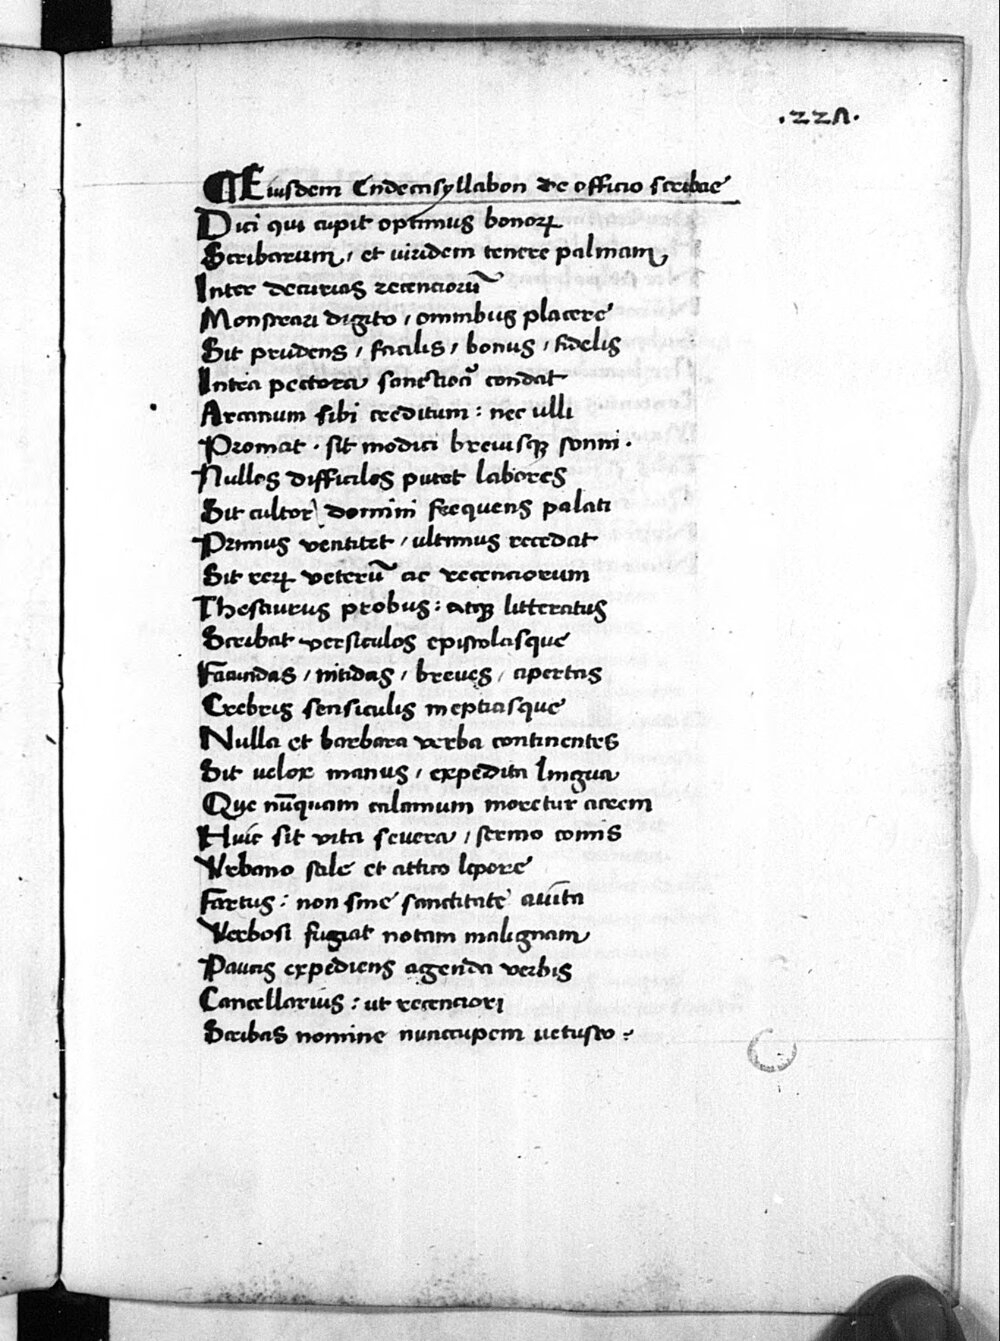 .227.
¶ Eiusdem Endecasyllabon de officio scribae
Dici qui cupit optimus bonoꝝ
Scribarum, et viridem tenere palmam,
Inter decurias recenciorū
Monstrari digito / omnibus placere
Sit prudens / facilis / bonus / fidelis
Intra pectora sanctiora condat
Arcanum sibi creditum : nec ulli
Promat . sit modici breuisqꝫ sonni .
Nullos difficiles putet labores
Sit cultor domini frequens palati
Primus ventitet / ultimus recedat
Sit reꝝ veterū ac recenciorum
Thesaurus probus : atqꝫ litteratus
Scribat versiculos epistolasque
Facundas / nitidas / breues / apertas
Crebris sensiculis ineptiasque
Nulla et barbara verba continentes
Sit uelox manus / expedita lingua
Quę nūquam calamum moretur acrem
Huic sit vita seuera / sermo comis
Vrbano sale et attico lepore
Fartus : non sine sanctitate auita
Verbosi fugiat notam malignam
Paucis expediens agenda verbis
Cancellarius : ut recenciori
Scribas nomine nuncupem uetusto :